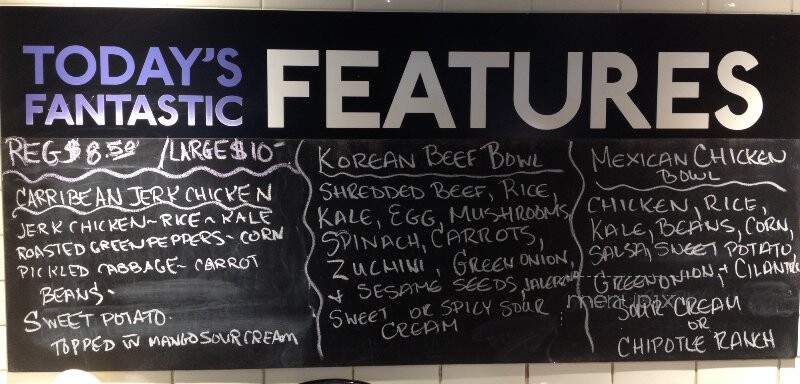 TODAY'S
FANTASTIC
FEATURES
REG $8.50 / LARGE $10-
CARRIBEAN JERK CHICKEN
JERK CHICKEN~ RICE~ KALE
ROASTED GREEN PEPPERS~ CORN
PICKLED CABBAGE~ CARROT
BEANS~
SWEET POTATO.
TOPPED IN MANGO SOUR CREAM
KOREAN BEEF BOWL
SHREDDED BEEF, RICE,
KALE, EGG, MUSHROOMS
SPINACH, CARROTS,
ZUCHINI, GREEN ONION,
+ SESAME SEEDS,
SWEET OR SPICY SOUR
CREAM
MEXICAN CHICKEN
BOWL
CHICKEN, RICE,
KALE, BEANS, CORN,
SALSA, SWEET POTATO,
GREEN ONION, + CILANTRO
SOUR CREAM
OR
CHIPOTLE RANCH
menupix